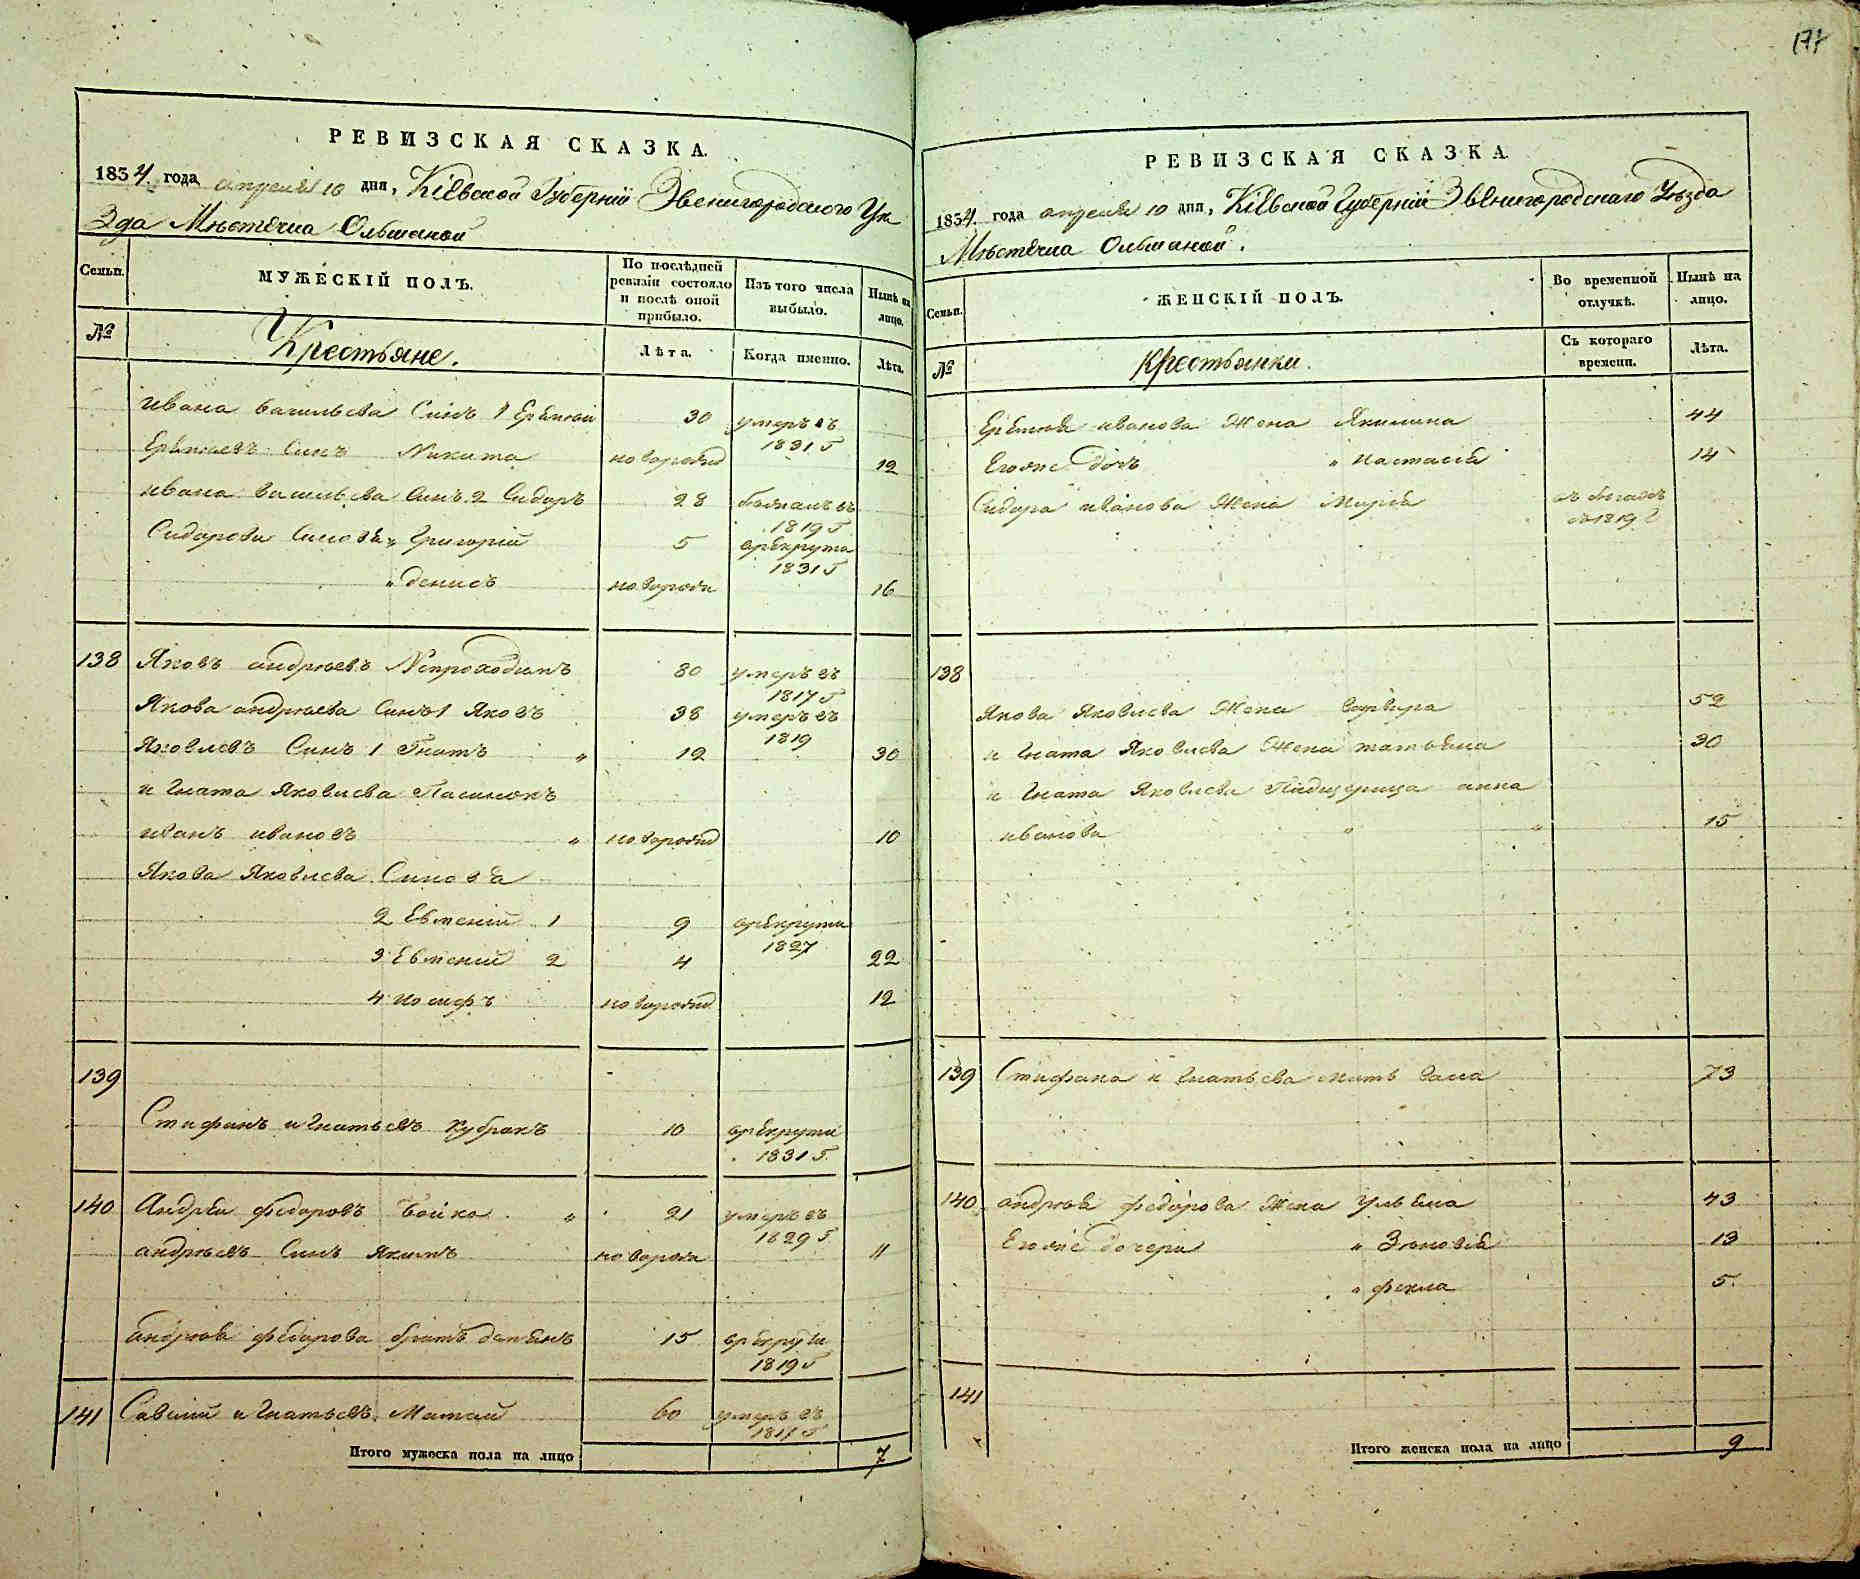 177
РЕВИЗСКАЯ СКАЗКА.
1834 года апреля 10 дня, Кіевской Губерніи Звенигородского Уѣ
зда Мѣстечка Ольшаной
Семьи. МУЖЕСКІЙ ПОЛЪ. По послѣдней ревизіи состояло и послѣ оной прибыло. Изъ того числа выбыло. Нынѣ на лицо.
№ Крестьяне. Лѣта. Когда именно. Лѣта.
Ивана Васильева Синъ 1 Еремѣй 30 умеръ въ 1831 г
Еремѣевъ Синъ Никита новорожд 12
Ивана Васильева Синъ 2 Сидоръ 28 бѣжалъ въ 1819 г
Сидорови Синовья " Григорій 5 врекрути 1831 г
" Денисъ новорож 16
138 Яковъ андреевъ Непроходимъ 80 умеръ въ 1817 г
Якова андреева Синъ 1 Яковъ 38 умеръ въ 1819
Яковлевъ Синъ 1 Гнатъ " 12 30
игната Яковлева Пасинокъ
иванъ ивановъ " новорожд 10
Якова Яковлева Синовья
2 Евмений 1 9 врекрути 1827
3 Евмений 2 4 22
4 иосифъ новорожд 12
139
Стифанъ игнатьевъ Кубракъ 10 врекрути 1831 г.
140 Андрей федоровъ Бойко " 21 умеръ въ 1829 г
андреевъ Синъ Якимъ новорож 11
андрея федорова братъ демянъ 15 врекрути 1819 г
141 Савелий игнатьевъ 60 умеръ въ 1817 г
Итого мужеска пола на лицо 7
РЕВИЗСКАЯ СКАЗКА
1834 года апреля 10 дня, Кіевской Губерніи Звенигородскаго Уѣзда
Мѣстечка Ольшаной.
Семьи. ЖЕНСКІЙ ПОЛЪ. Во временной отлучкѣ. Нынѣ на лицо.
№ Крестьянки. Съ котораго времени. Лѣта.
Еремѣя иванова Жена Якилина 44
Егоже дочь " Настасія 14
Сидора иванова Жена Марія въ бегахъ съ 1819 г
138
Якова Яковлева Жена варвара 52
игната Яковлева Жена татьяна 30
игната Яковлева Падщерица анна
иванова " " 15
139 Стифана игнатьева мать 73
140 андрея федорова Жена Ульяна 43
Егоже дочери " Зѣновія 13
" фекла 5.
141
Итого женска пола на лицо 9